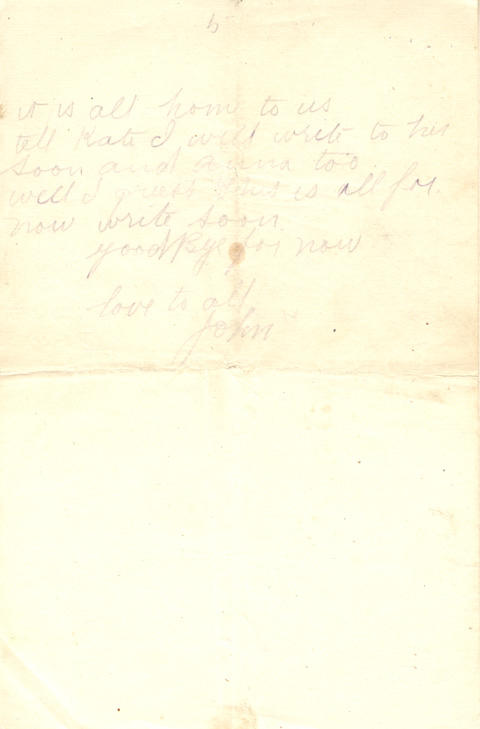 5
it is all home to us
tell Kate I will write to her
soon and anna too
well I guess this is all for
now write soon
goodBye for now
love to all
John